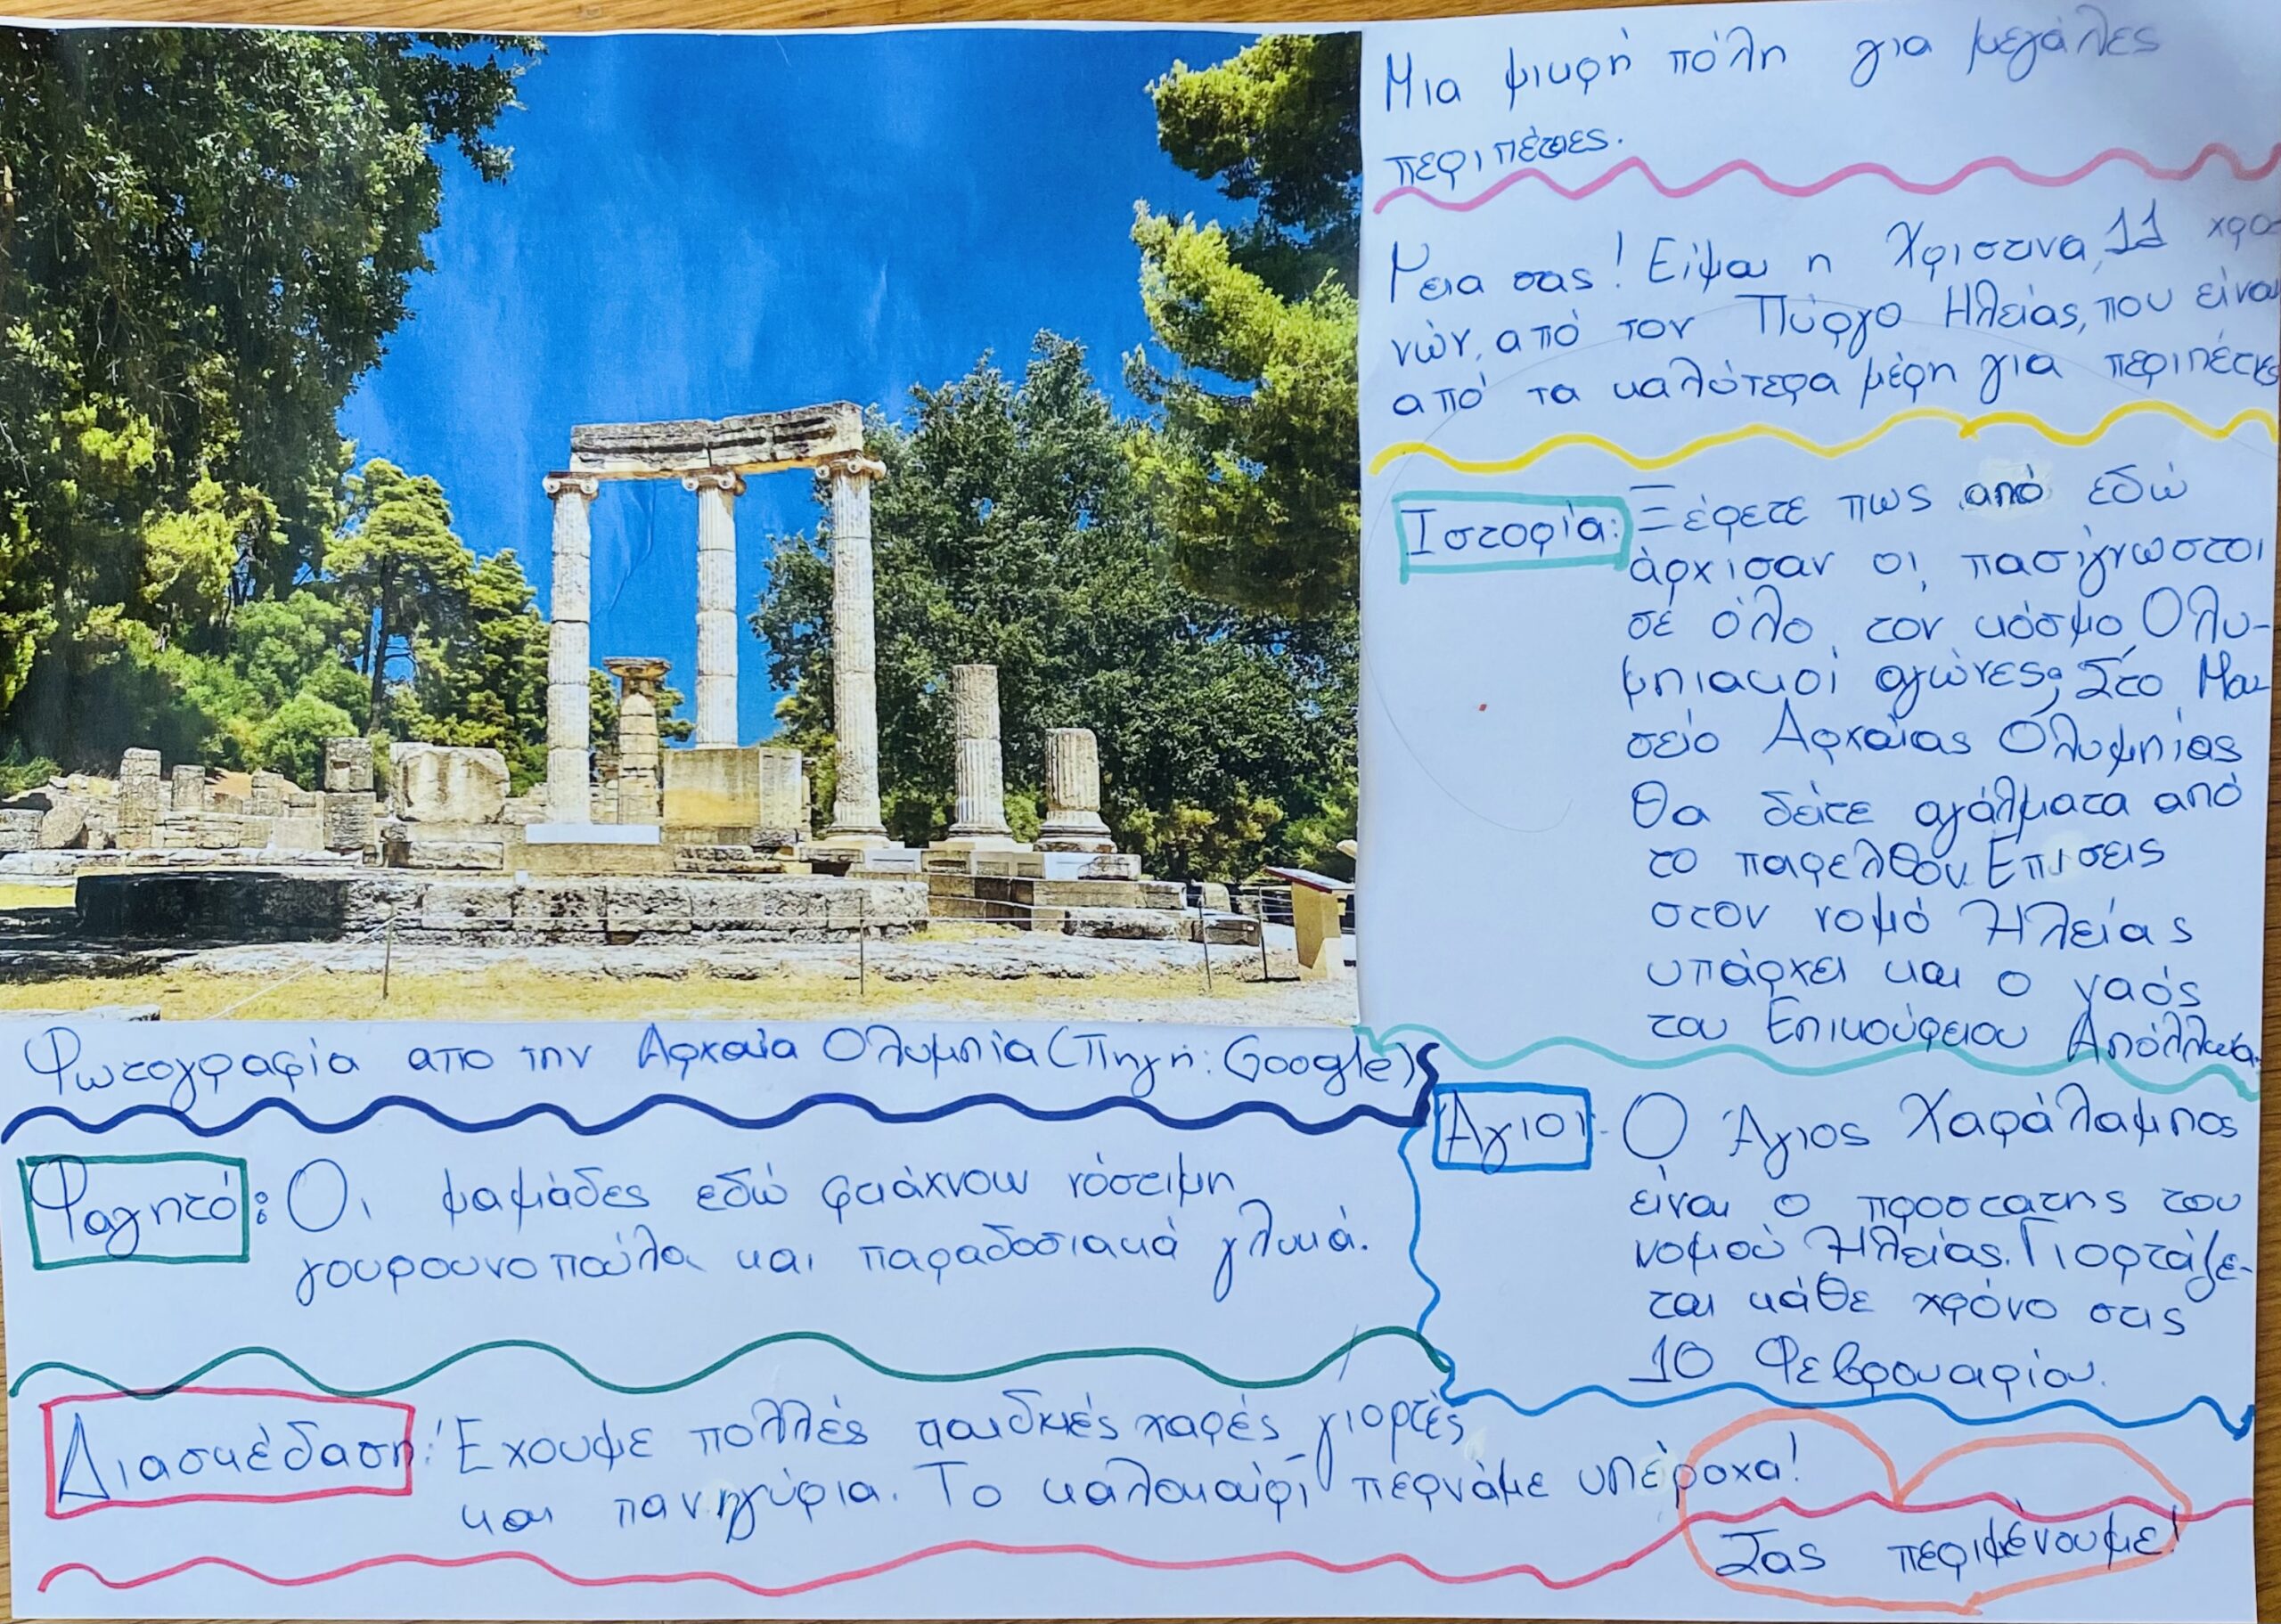 Μια μικρή πόλη για μεγάλες
περιπέτειες.
Γεια σας! Είμαι η Χριστινα, 11 χρο-
νών, από τον Πύργο Ηλείας, που είναι
από τα καλύτερα μέρη για περιπέτειες
Ιστορία: Ξέρετε πως από εδώ
άρχισαν οι πασίγνωστοι
σε όλο τον κόσμο, Ολυ-
μπιακοί αγώνες; Στο Μου-
σείο Αρχαίας Ολυμπίας
θα δείτε αγάλματα από
το παρελθόν. Επισεις
στον νομό Ηλείας
υπάρχει και ο ναός
του Επικούρειου Απόλλωνα.
Φωτογραφία απο την Αρχαία Ολυμπία (Πηγή: Google)
Άγιοι: Ο Άγιος Χαράλαμπος
είναι ο προστατης του
νομού Ηλείας. Γιορτάζε-
ται κάθε χρόνο στις
10 Φεβρουαρίου.
Φαγητό: Οι μαμάδες εδώ φτιάχνουν νόστιμη
γουρουνοπούλα και παραδοσιακά γλυκά.
Διασκέδαση: Έχουμε πολλές παιδικές χαρές γιορτές
και πανηγύρια. Το καλοκαίρι περνάμε υπέροχα!
Σας περιμένουμε!